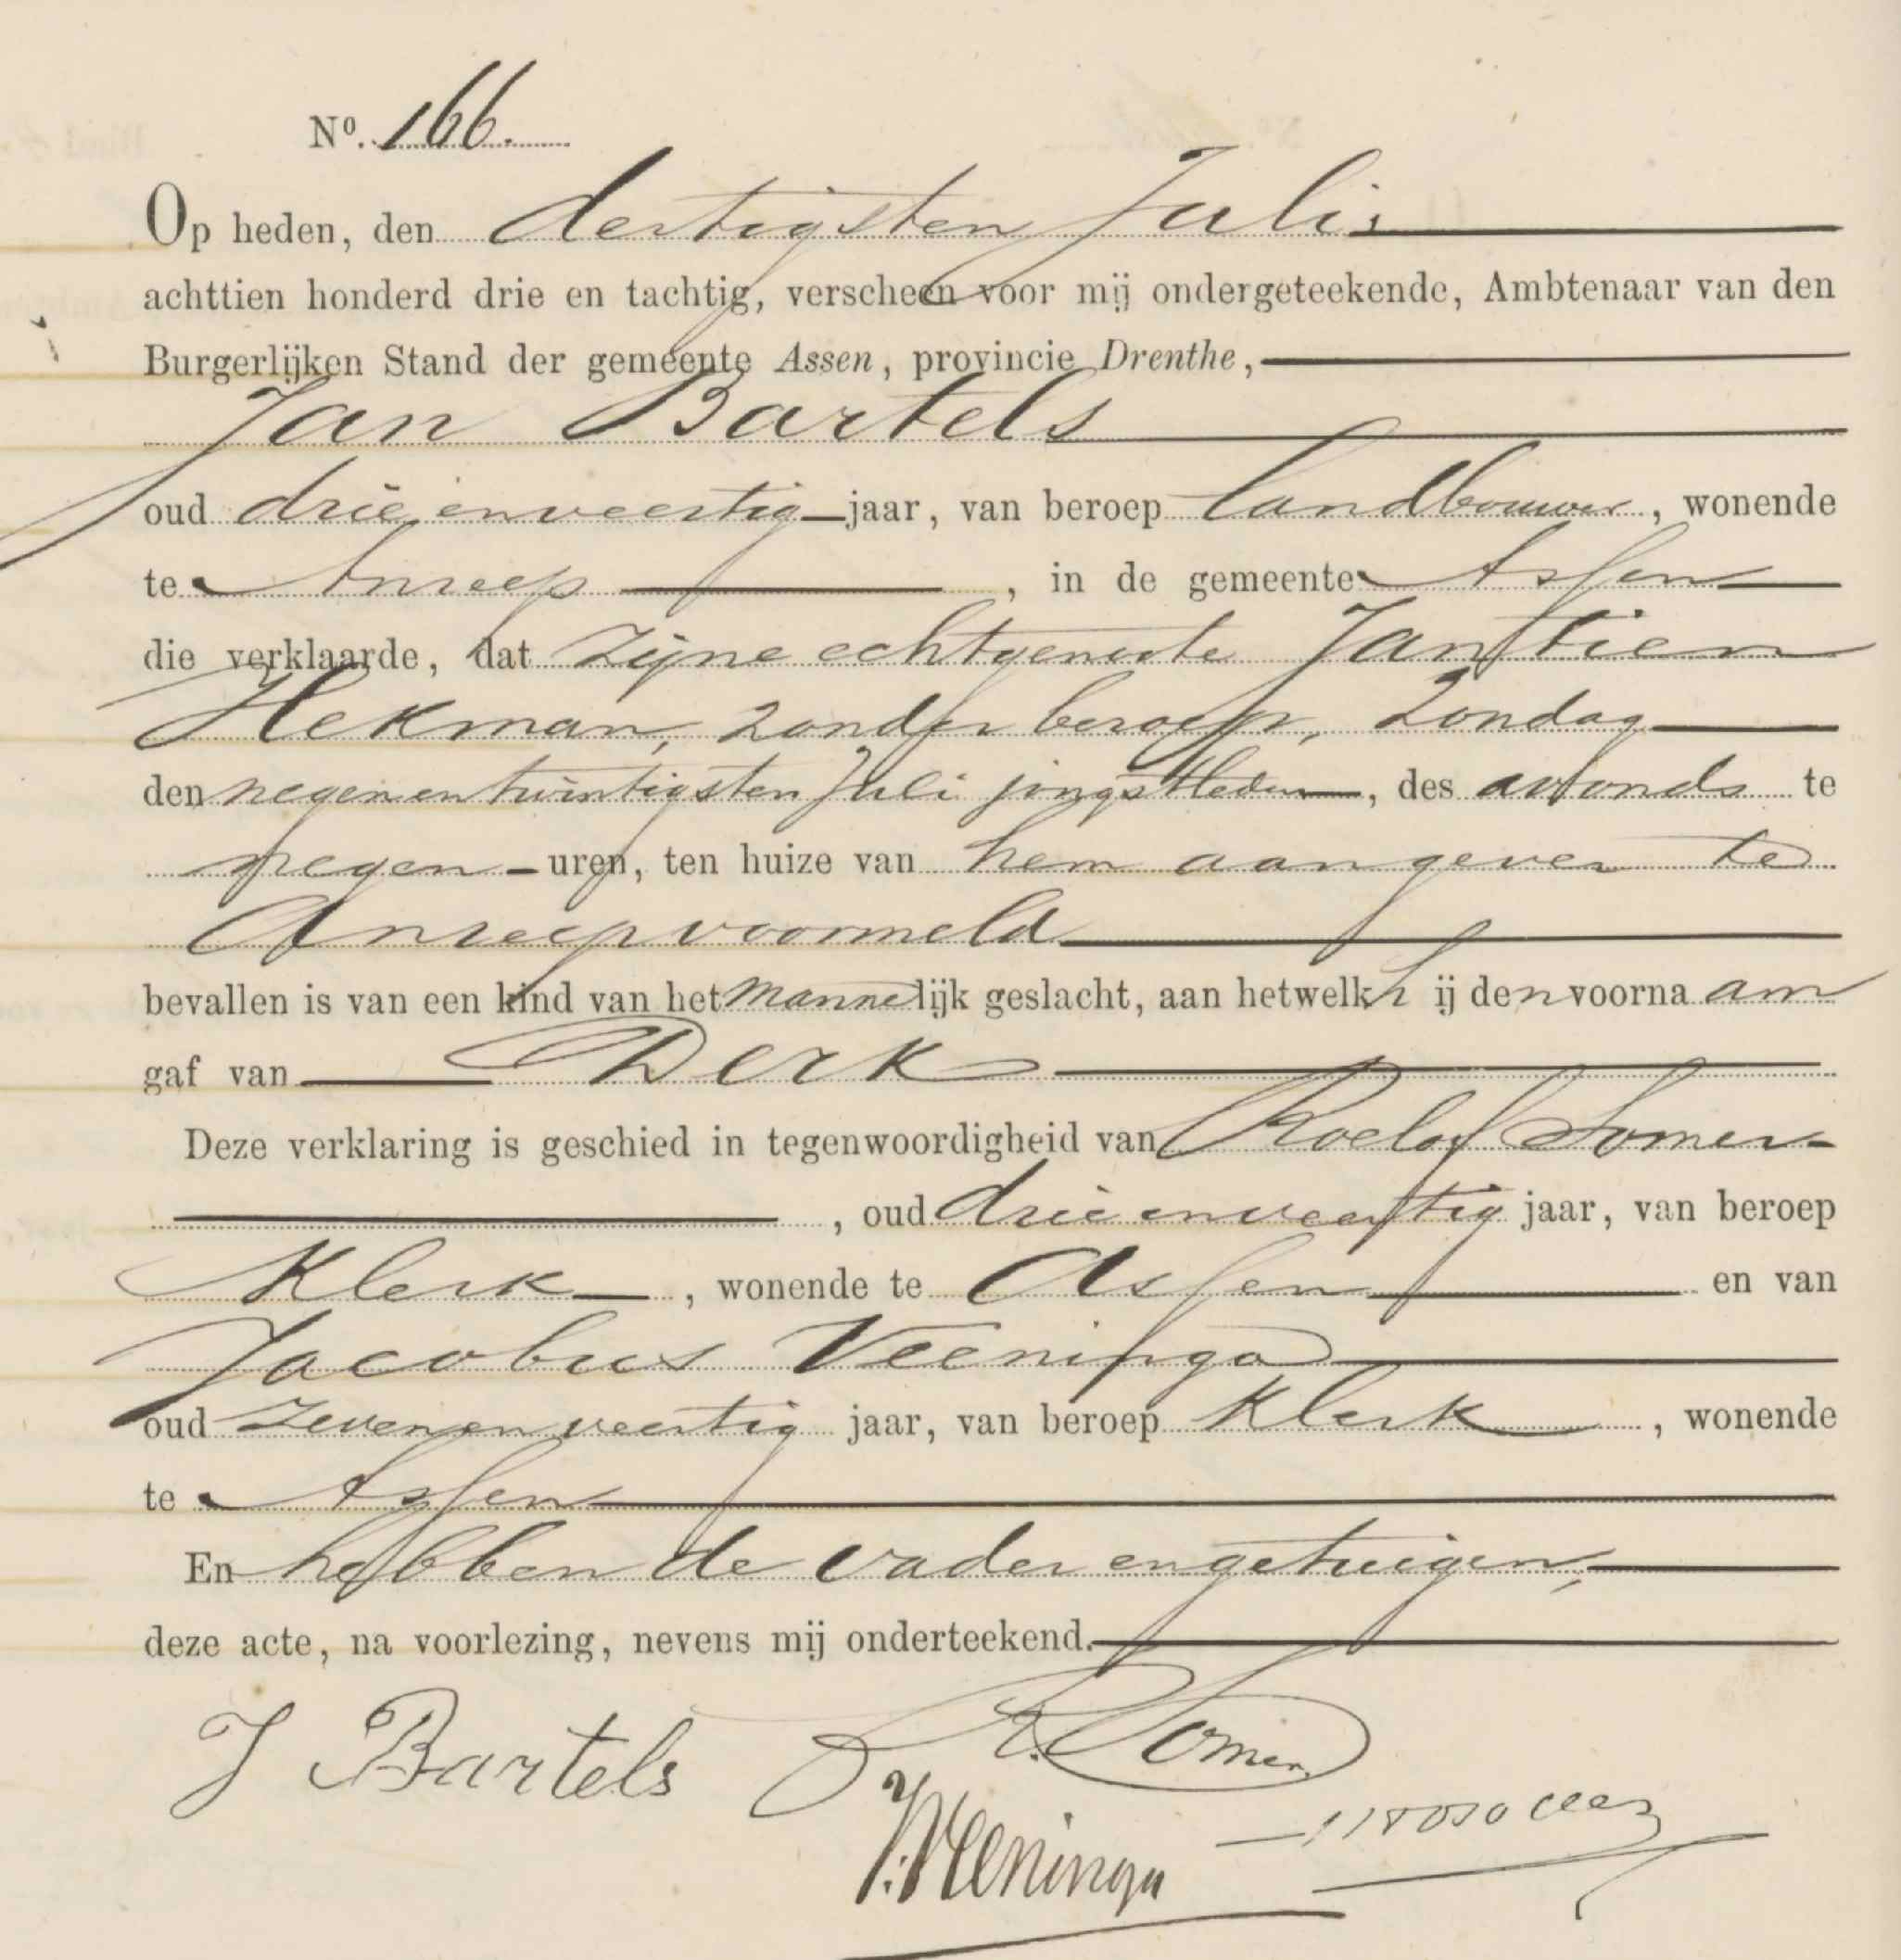 No. 166.
Op heden, den dertigsten Julij
achttien honderd drie en tachtig, verscheen voor mij ondergeteekende, Ambtenaar van den
Burgerlijken Stand der gemeente Assen, provincie Drenthe,
Jan Bartels
oud drieenveertig jaar, van beroep landbouwer, wonende
te Anreep, in de gemeente Assen
die verklaarde, dat zijne echtgenoote Jantien
Hekman, zonder beroep, Zondag
den negenentwintigsten Juli jongstleden, des avonds te
negen uren, ten huize van hem aangever te
Anreep voormeld
bevallen is van een kind van het mannelijk geslacht, aan hetwelk hij den voornaam
gaf van Derk
Deze verklaring is geschied in tegenwoordigheid van Roelof Somer
, oud drieenveertig jaar, van beroep
Klerk, wonende te Assen en van
Jacobus Veeninga
oud zevenenveertig jaar, van beroep Klerk, wonende
te Assen
En hebben de vader en getuigen,
deze acte, na voorlezing, nevens mij onderteekend.
J Bartels R. Somer
J. Veeninga